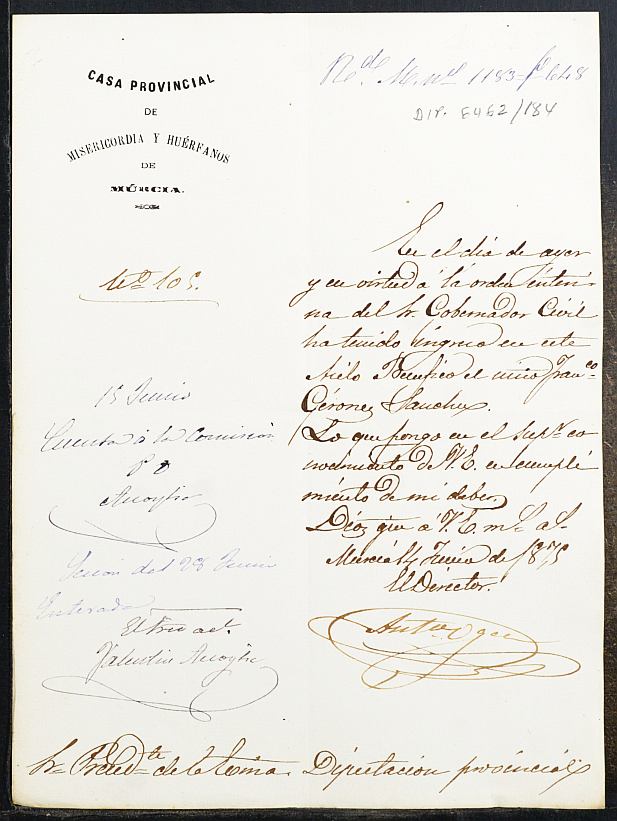 CASA PROVINCIAL
DE
MISERICORDIA Y HUÉRFANOS
DE
MÚRCIA.
Rdo. al nº 1183 fº 648
DIP. 6462/184
Nº 105.
En el dia de ayer
y en virtud á la orden inter-
na del Sr. Gobernador Civil
ha tenido ingreso en este
Asilo Benefico el niño Franco.
Gérones Sanchez.
Lo que pongo en el supr. co
nocimiento de V.E. en cumpli
miento de mi deber.
Dios gue á V.E. ms. as.
Murcia 14 Junio de 1875
El Director.
15 Junio
Cuenta á la Comision
P
Sesion del 28 Junio
Enterada
Valentin
Sr. Presidte. de la Exma. Diputacion provincial